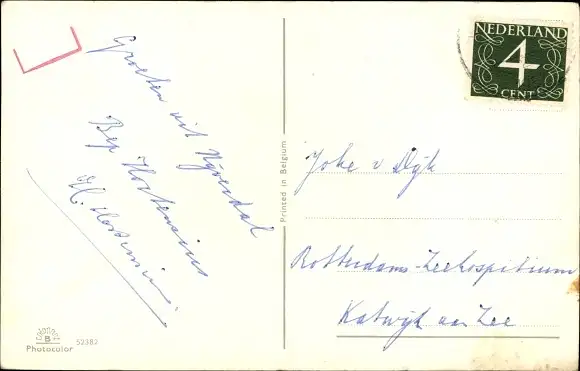 Groeten uit Nijverdal
Bep Hortensius
H.
NEDERLAND
4
CENT
Printed in Belgium
Joke v Dijk
Rotterdams-Zeehospitium
Katwijk aan Zee
B
Photocolor
52382